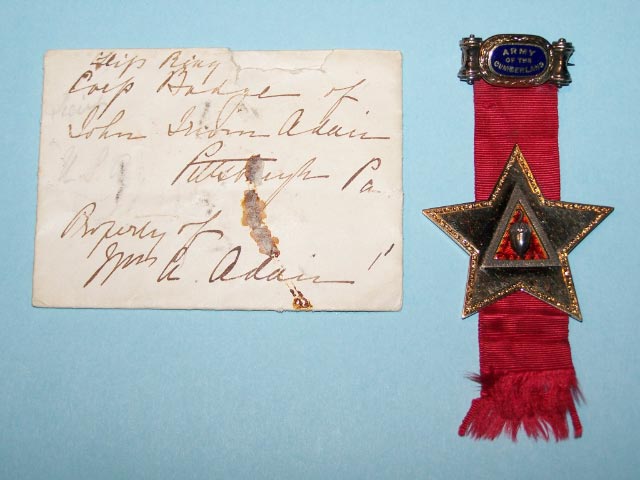 Corp Badge of
John Irwin Adair
Pittsburgh Pa.
Property of
Wm A. Adair
ARMY
OF THE
CUMBERLAND